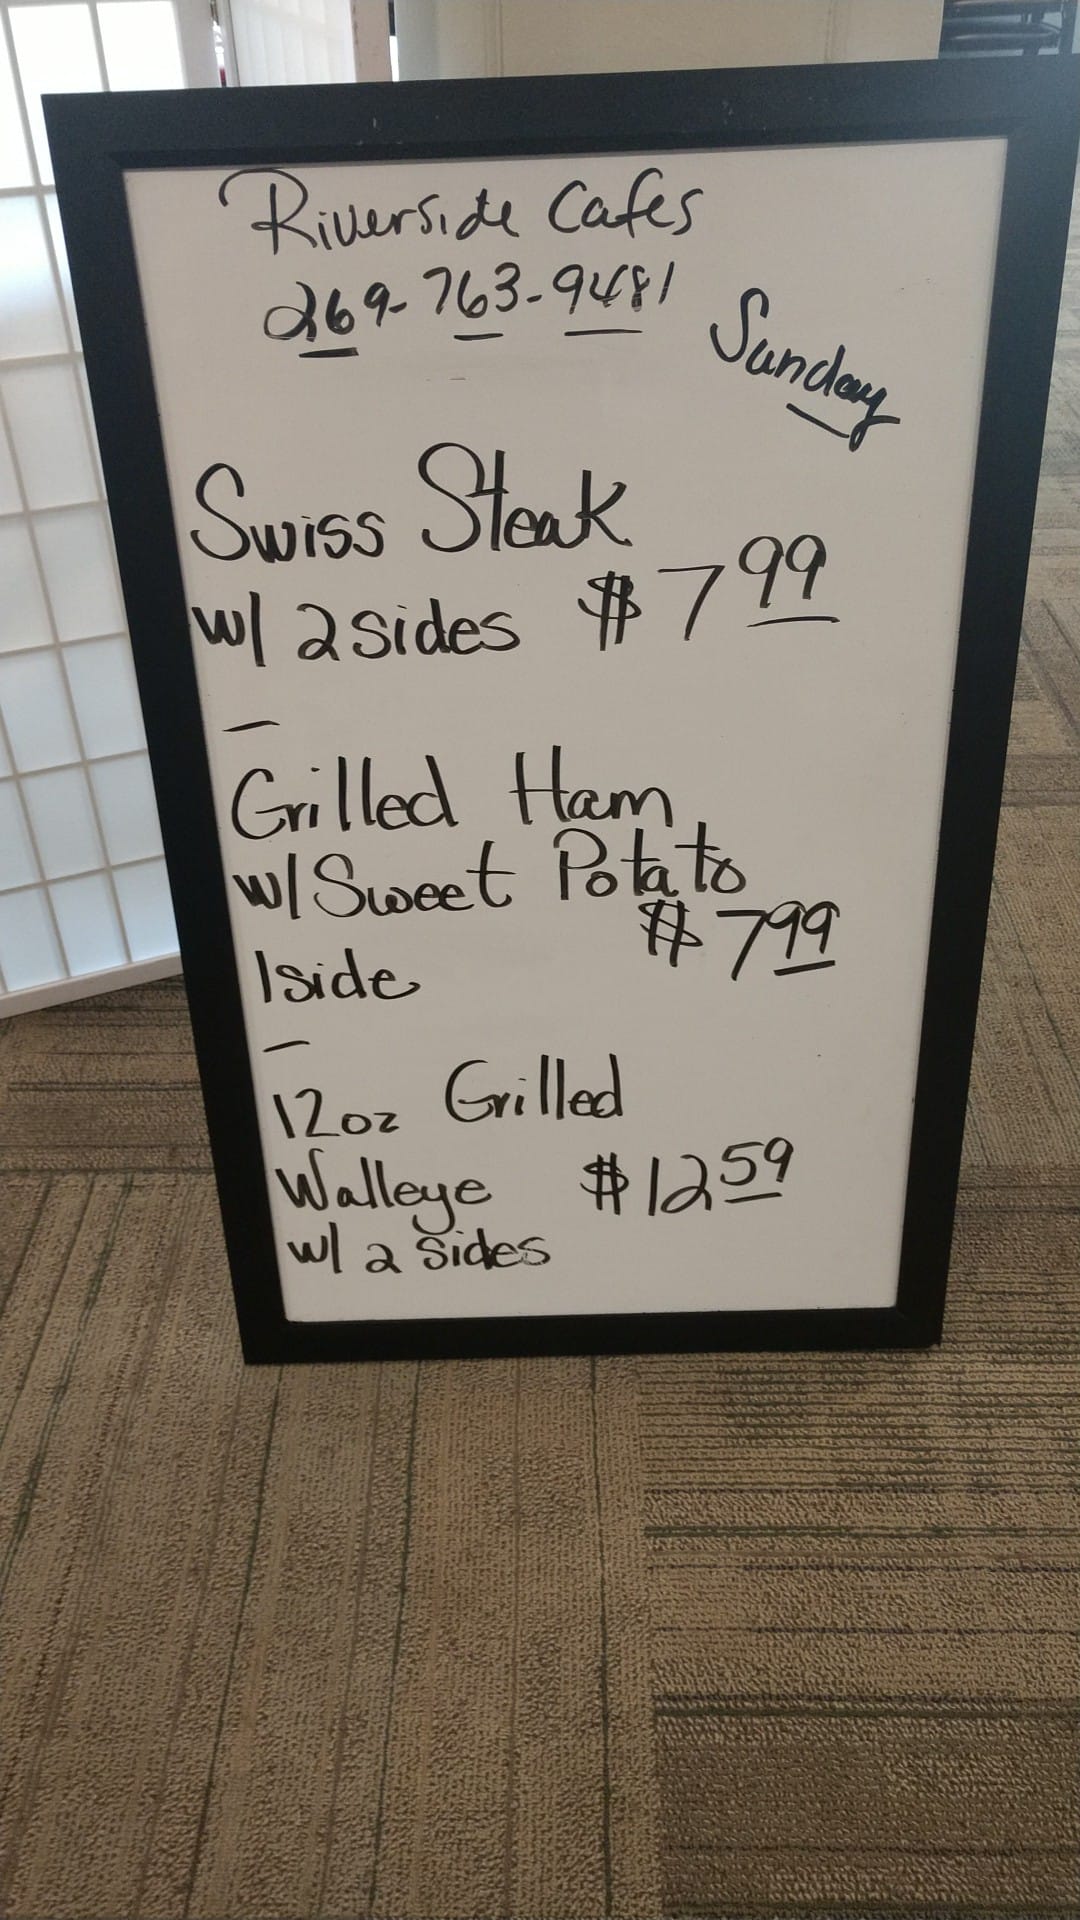 Riverside Cafes
269-763-9481
Sunday
Swiss Steak
w/ 2 sides $7.99
Grilled Ham
w/ Sweet Potato
$7.99
1 side
12oz Grilled
Walleye $12.59
w/ 2 sides